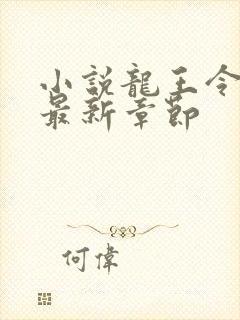 小説龍王令
最新章節
何偉